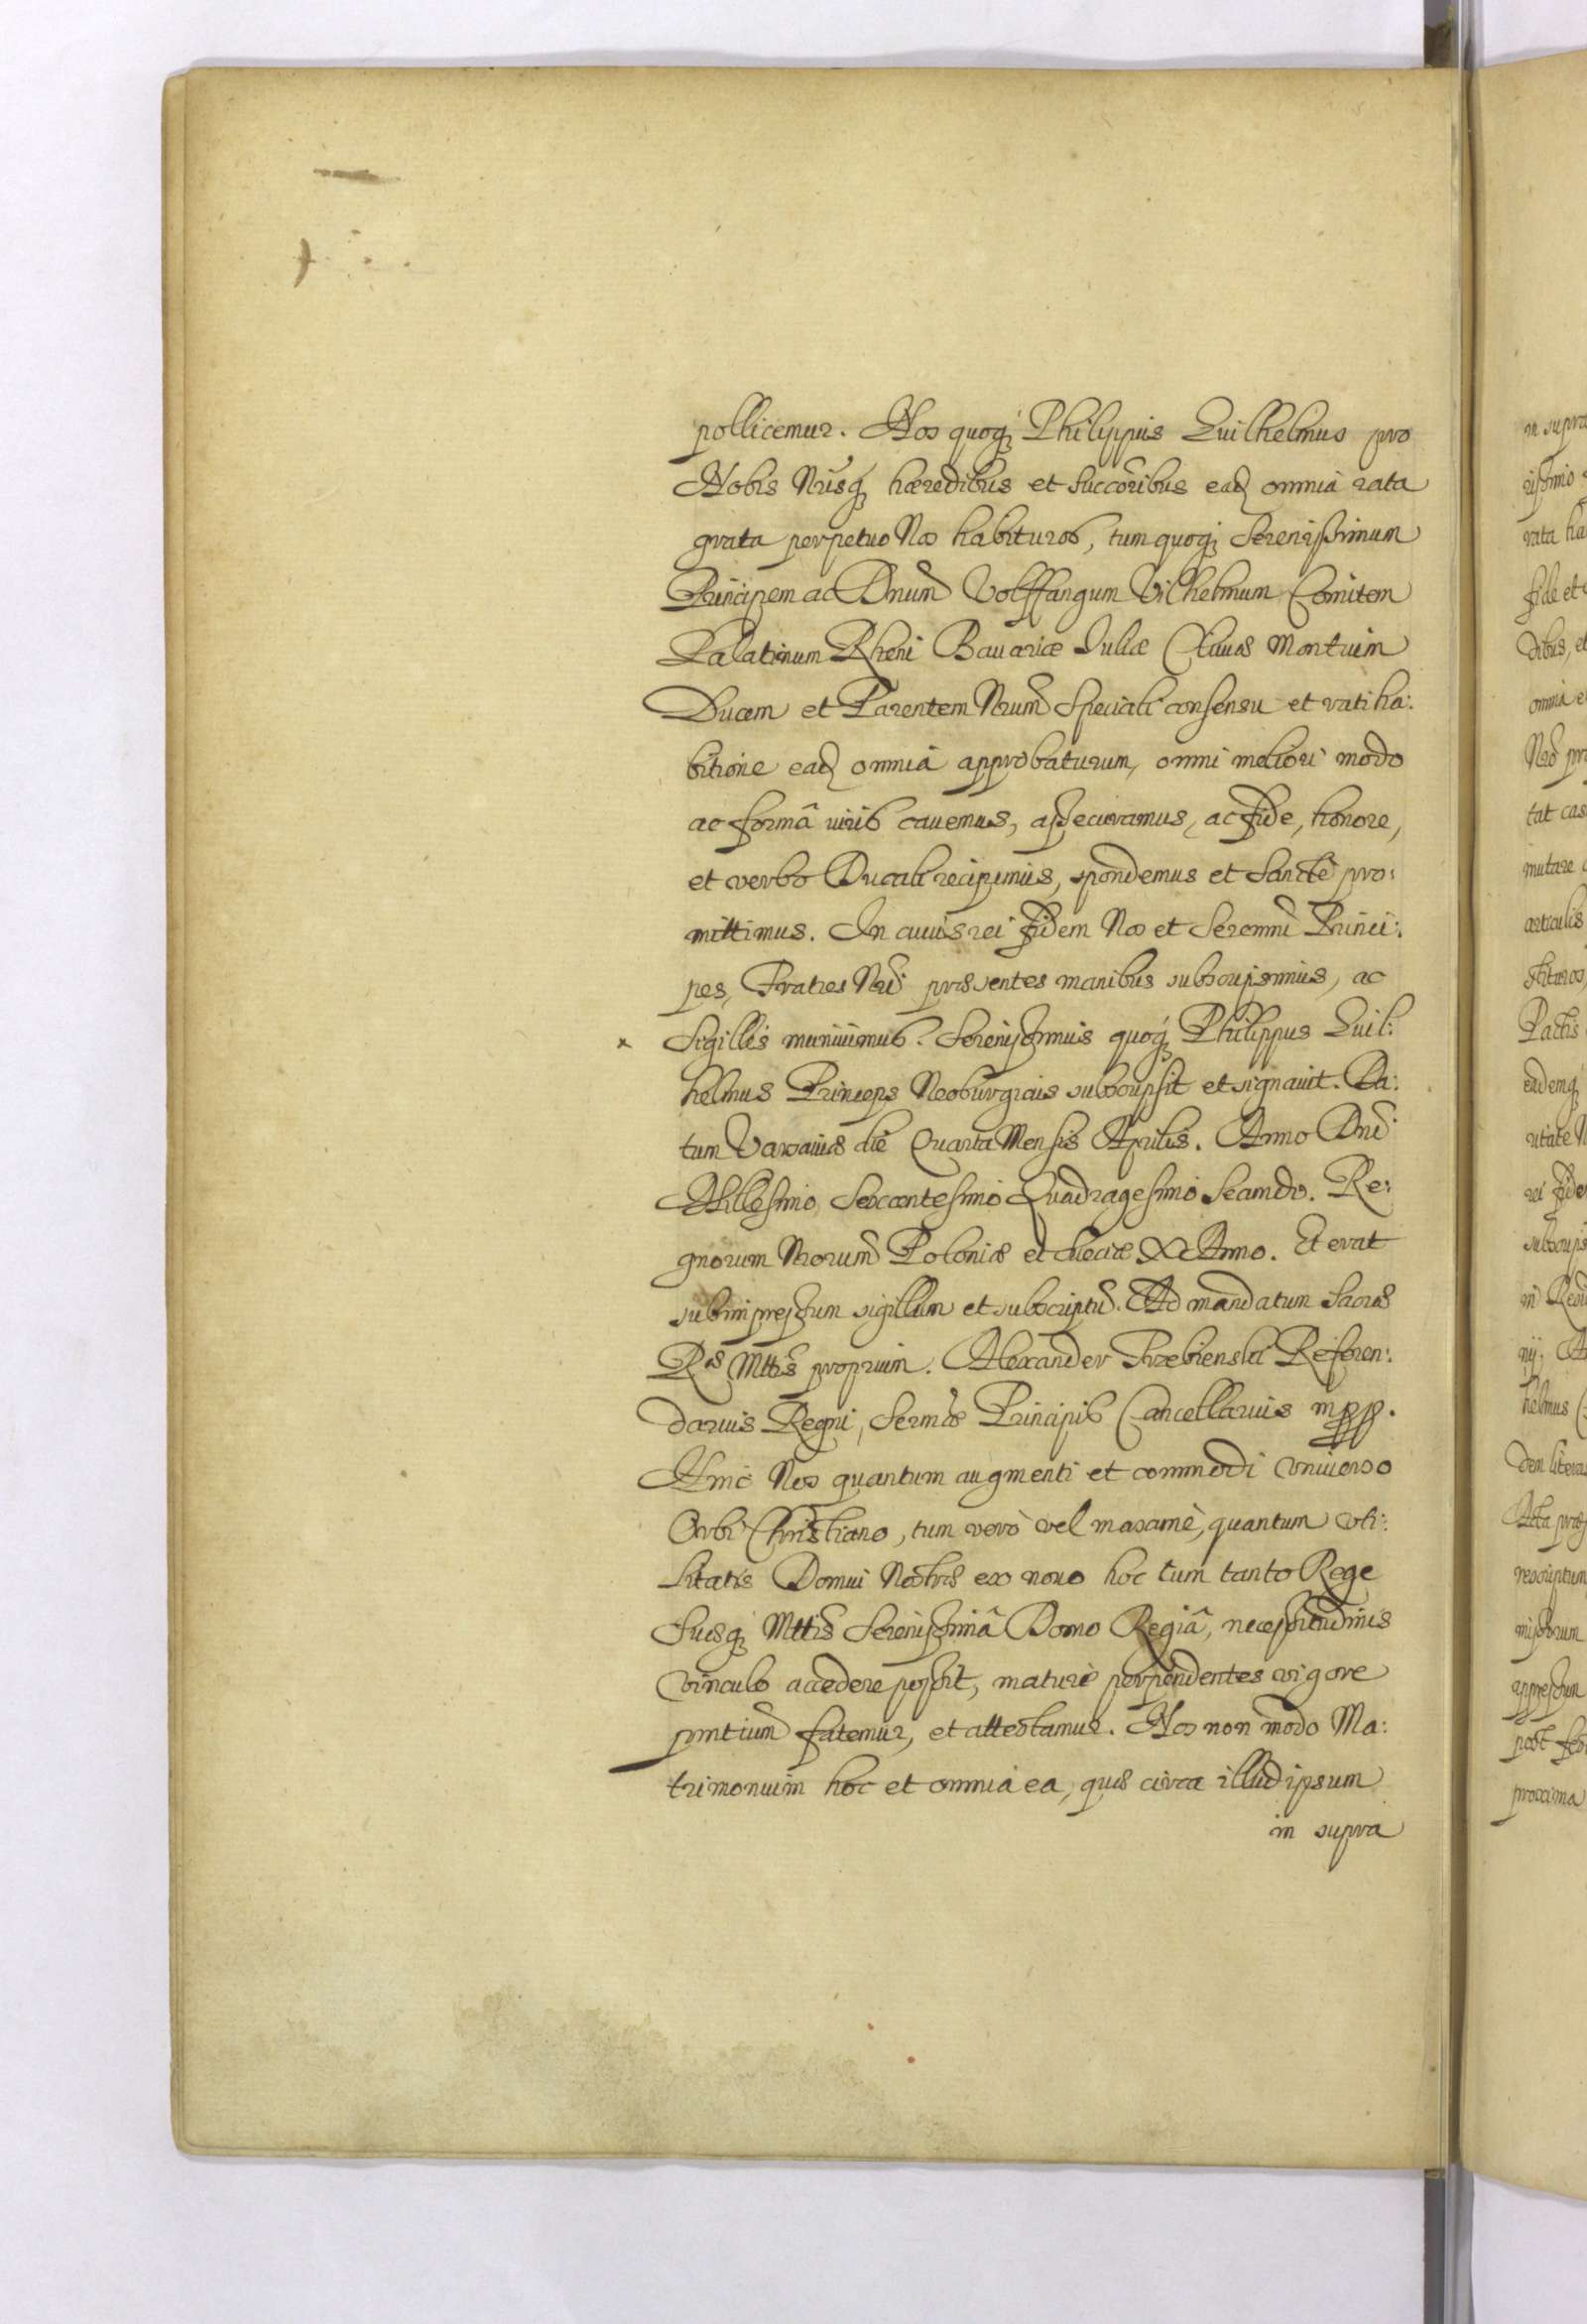 pollicemur. Nos quoq́; Philippus Guilhelmus pro
Nobis Nr̃isq́; hæredibus et Succõribus ead; omnia rata
grata perpetuo Nos habituros, tum quoq; Serenissimum
Principem ac Dnum̃ Volffangum Vilhelmum Comitem
Palatinum Rheni Bavariæ Juliæ Cliuiæ Montium
Ducem et Parentem Nrum̃ Speciali consensu et ratiha:
bitione ead; omnia approbaturum, omni meliori modo
ac formâ iuris cauemus, assecuramus, ac fide, honore,
et verbo Ducali recipimus, spondemus et Sanctè pro:
mittimus. In cuius rei fidem Nos et Serenmi Princi:
pes, Fratres Nri præsentes manibus subscripsimus, ac
x Sigillis muniuimus. Serenissimus quoq́; Philippus Guil:
helmus Princeps Neoburgicus subscripsit et signauit. Da:
tum Varsauiæ die Quarta Mensis Aprilis. Anno Dni
Millesimo Sexcentesimo Quadragesimo Secundo. Re:
gnorum Nrorum̃ Poloniæ et Sueciæ X Anno. Et erat
subimpressum sigillum et subscriptũ. Ad mandatum Sacræ
Ræ Mttis proprium. Alexander Trzebienski Referen:
darius Regni, Sermæ Principis Cancellarius mpp.
Hinc Nos quantum augmenti et commodi vniuerso
Orbi Christiano, tum verò vel maxamè, quantum vti:
litatis Domui Nostræ ex nouo hoc cum tanto Rege
Suæq́; Mttis Serenissimâ Domo Regiâ, necessitudinis
vinculo accedere possit, maturè perpendentes vigore
prntium̃ fatemur, et attestamur. Nos non modo Ma:
trimonium hoc et omnia ea, quæ circa illud ipsum
in supra
in supra
rissimo
rata ha
fide et
dibus, et
omnia e
Neo pr
tat cas
mutare
articulis
stituros
Pactis
eademq́;
utate N
rei fide
subscrips
in Resid
nij, A
helmus
dem litera
Acta præ
rescriptum
missorum
appressum
post feb
proxima